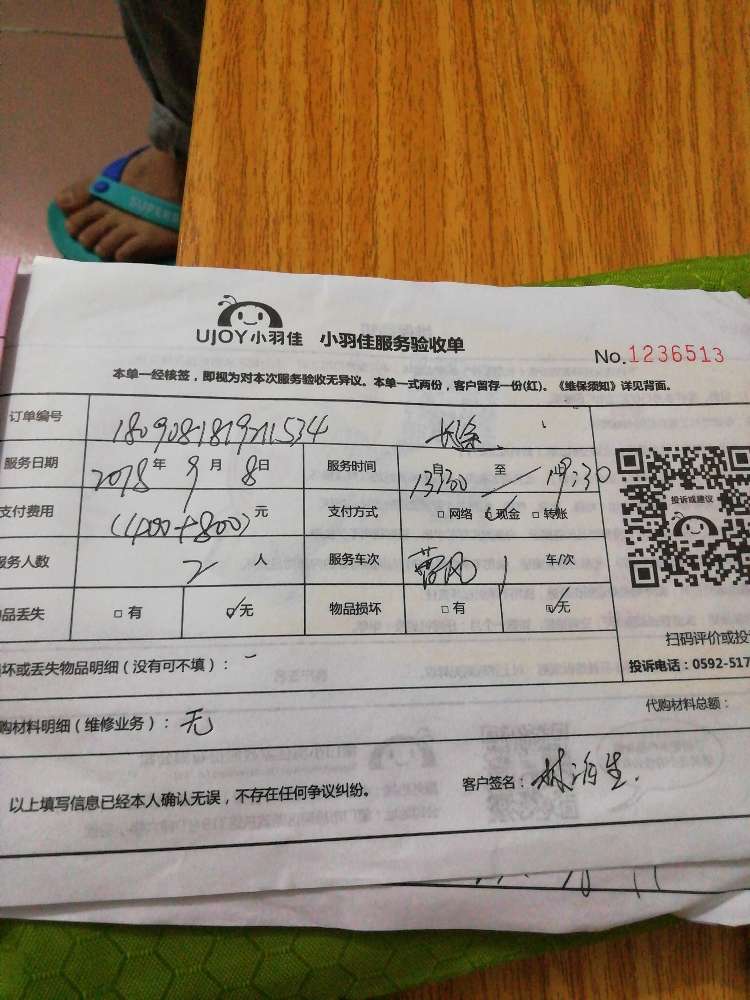 SUPER
UJOY小羽佳 小羽佳服务验收单
No.1236513
本单一经核签，即视为对本次服务验收无异议。本单一式两份，客户留存一份(红)。《维保须知》详见背面。
订单编号
服务日期 2018年9月8日 服务时间 自13:30至19:30
支付费用 (400+800)元 支付方式 □网络 ☑现金 □转账
服务人数 2人 服务车次 1 车/次
品丢失 □有 ☑无 物品损坏 □有 ☑无
投诉或建议
扫码评价或投
坏或丢失物品明细（没有可不填）：-
投诉电话：0592-517
购材料明细（维修业务）：无
代购材料总额：
以上填写信息已经本人确认无误，不存在任何争议纠纷。
客户签名：林